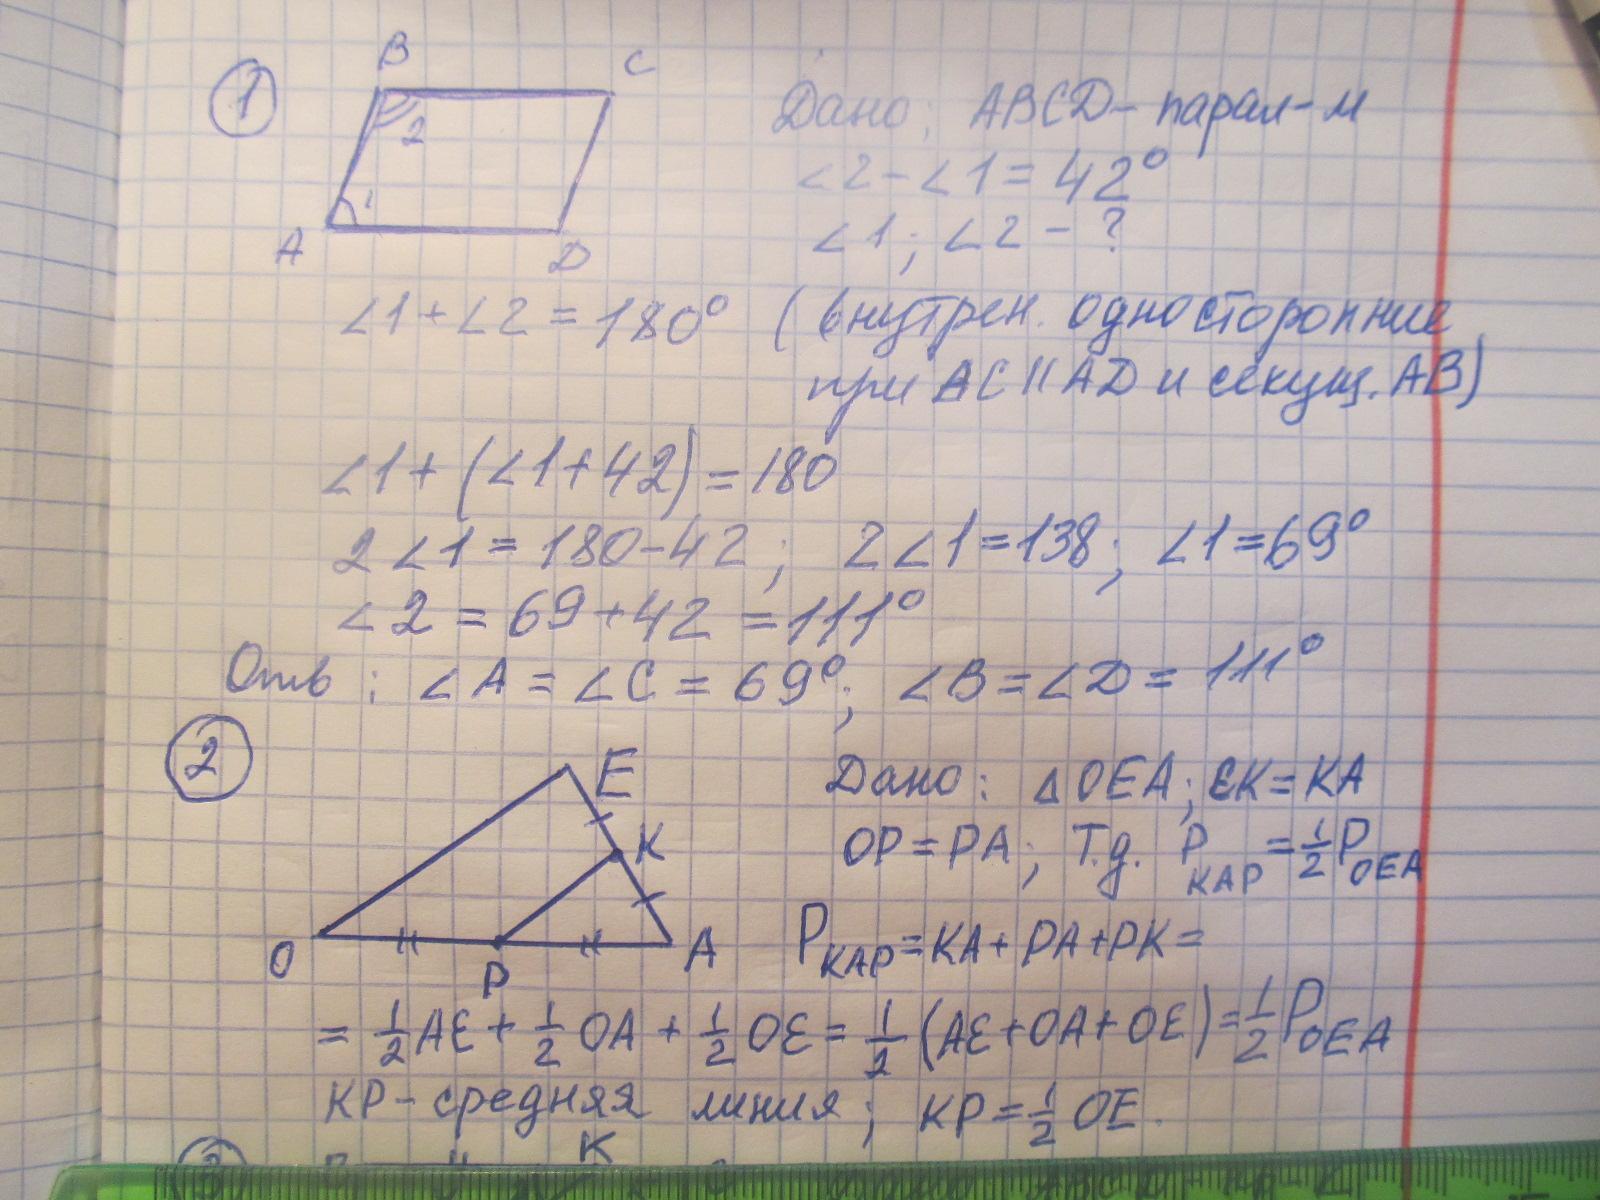 1
B C
2
1
A D
Дано: ABCD - парал-м
∠2 - ∠1 = 42°
∠1; ∠2 - ?
∠1 + ∠2 = 180° (внутрен. односторонние
при AC || AD и секущ. AB)
∠1 + (∠1 + 42) = 180
2∠1 = 180 - 42; 2∠1 = 138; ∠1 = 69°
∠2 = 69 + 42 = 111°
Отв: ∠A = ∠C = 69°; ∠B = ∠D = 111°
2
E
K
O P A
Дано: △OEA; EK = KA
OP = PA; Т.д. P_KAP = 1/2 P_OEA
P_KAP = KA + PA + PK =
= 1/2 AE + 1/2 OA + 1/2 OE = 1/2 (AE + OA + OE) = 1/2 P_OEA
KP - средняя линия; KP = 1/2 OE.
3 K